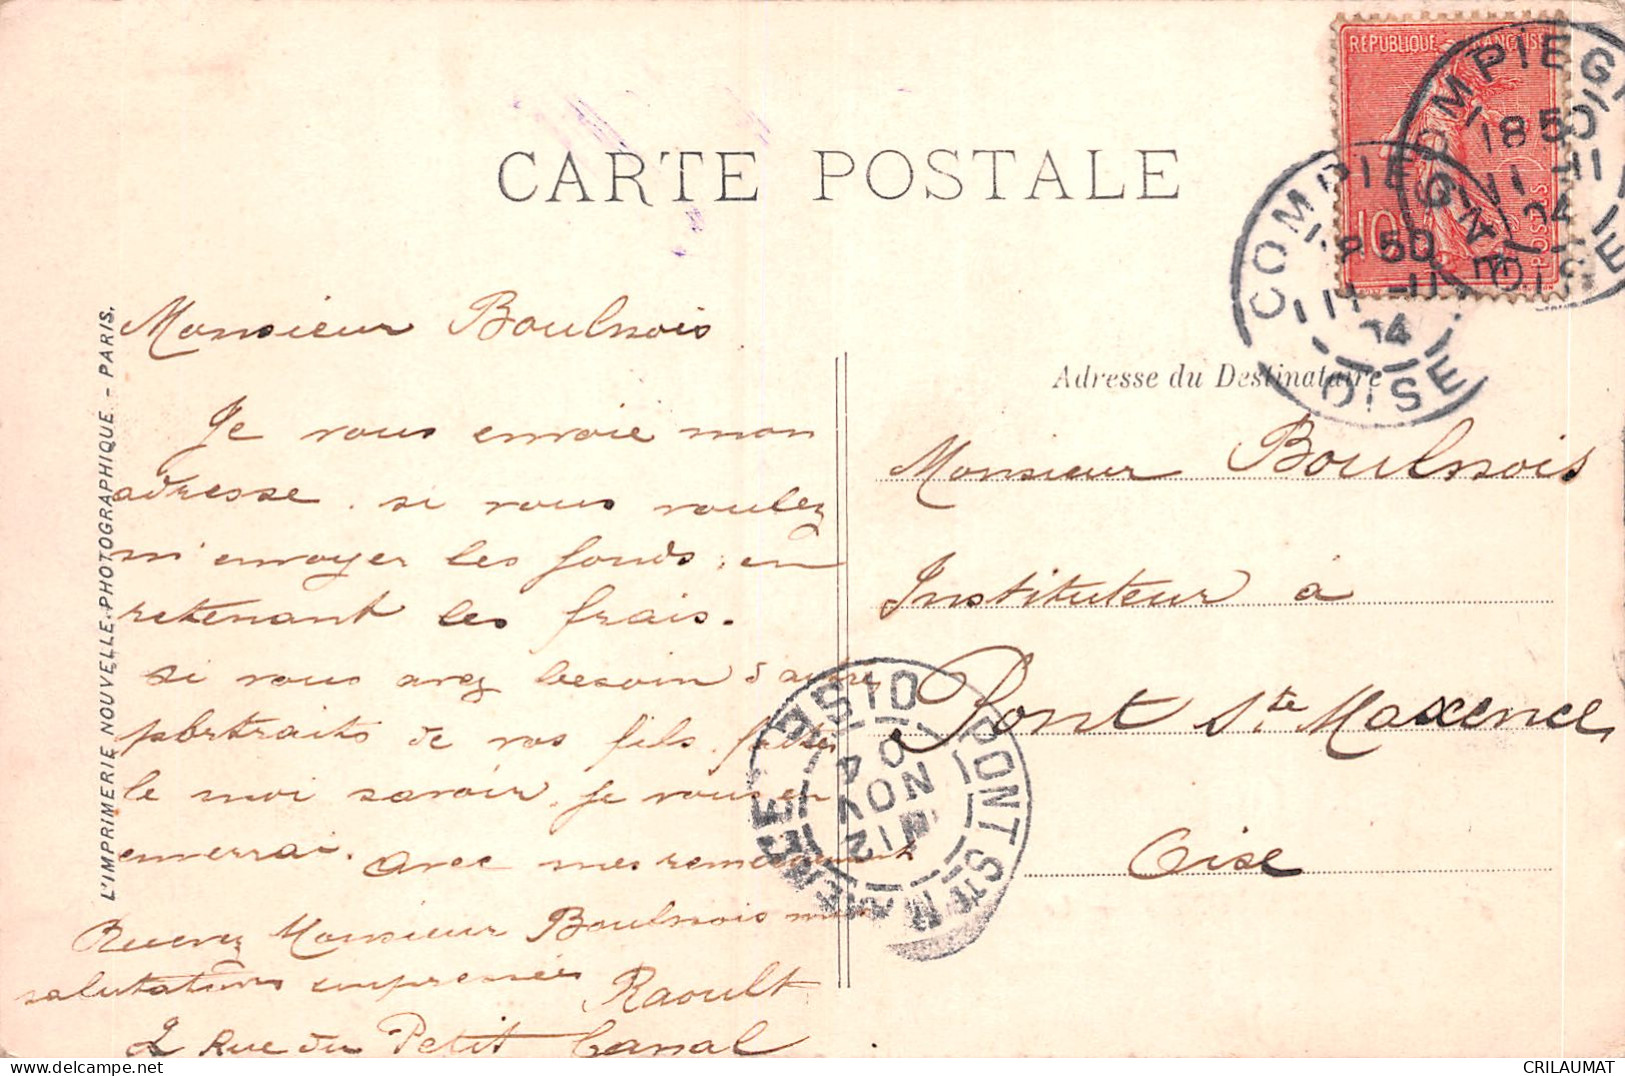 CARTE POSTALE
RÉPUBLIQUE FRANÇAISE
10
POSTES
COMPIEGNE
18 50
11 -11
04
OISE
COMPIEGNE
18 50
11 -11
04
OISE
L'IMPRIMERIE NOUVELLE PHOTOGRAPHIQUE - PARIS.
Monsieur Boulnois
Je vous envoie mon
adresse. si vous voulez
m'envoyer les fonds, en
retenant les frais.
si vous avez besoin d'autres
portraits de vos fils. faites
le moi savoir, je vous en
enverrai. avec mes remerciements
Recevez Monsieur Boulnois mes
salutations empressées
Raoult
2 Rue du Petit Canal
Adresse du Destinataire
Monsieur Boulnois
Instituteur à
Pont Ste Maxence
Oise
PONT STE MAXENCE
12
NOV
04
OISE
CRILAUMAT